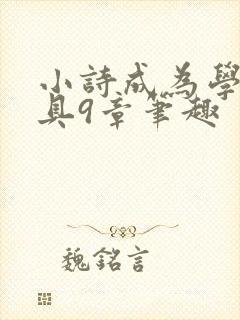 小詩成為學
具9章筆趣
魏銘言